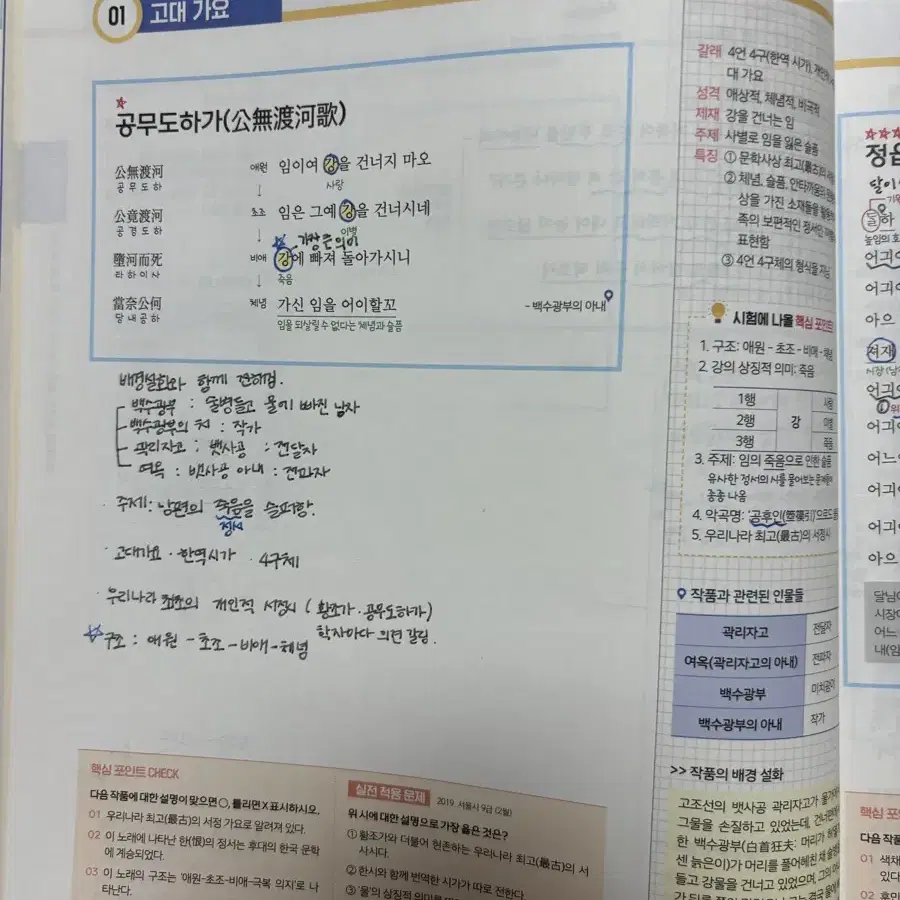 01 고대 가요
공무도하가(公無渡河歌)
公無渡河 애원 임이여 강을 건너지 마오
공무도하 사랑
公竟渡河 초조 임은 그예 강을 건너시네
공경도하 이별
가장 큰 의미
墮河而死 비애 강에 빠져 돌아가시니
타하이사 죽음
當奈公何 체념 가신 임을 어이할꼬
당내공하 임을 되살릴 수 없다는 체념과 슬픔
- 백수광부의 아내
배경설화와 함께 전해짐.
백수광부 : 술병들고 물에 빠진 남자
백수광부의 처 : 작가
곽리자고 : 뱃사공 : 전달자
여옥 : 뱃사공 아내 : 전파자
· 주제: 남편의 죽음을 슬퍼함.
정서
· 고대가요 · 한역시가 · 4구체
· 우리나라 최초의 개인적 서정시 (황조가 · 공무도하가)
학자마다 의견 갈림.
구조 : 애원 - 초조 - 비애 - 체념
핵심 포인트 CHECK
다음 작품에 대한 설명이 맞으면 ○, 틀리면 X 표시하시오.
01 우리나라 최고(最古)의 서정 가요로 알려져 있다.
02 이 노래에 나타난 한(恨)의 정서는 후대의 한국 문학
에 계승되었다.
03 이 노래의 구조는 '애원-초조-비애-극복 의지'로 나
타난다.
실전 적용 문제 2019. 서울시 9급 (2월)
위 시에 대한 설명으로 가장 옳은 것은?
① 황조가와 더불어 현존하는 우리나라 최고(最古)의 서
사시다.
② 한시와 함께 번역한 시가가 따로 전한다.
③ '물'의 상징적 의미를
갈래 4언 4구(한역 시가),
대 가요
성격 애상적, 체념적, 비극적
제재 강을 건너는 임
주제 사별로 임을 잃은 슬픔
특징 ① 문학사상 최고(最古)의
② 체념, 슬픔, 안타까움의
상을 가진 소재들을
족의 보편적인 정서인
표현함
③ 4언 4구체의 형식을 지님
시험에 나올 핵심 포인트
1. 구조: 애원 - 초조 - 비애 - 체념
2. 강의 상징적 의미: 죽음
1행 사랑
2행 강 이별
3행 죽음
3. 주제: 임의 죽음으로 인한 슬픔
유사한 정서의 시를 물어보는 문제들이
종종 나옴
4. 악곡명: '공후인(箜篌引)'으로도
5. 우리나라 최고(最古)의 서정시
작품과 관련된 인물들
곽리자고 전달자
여옥(곽리자고의 아내) 전파자
백수광부 미치광이
백수광부의 아내 작가
>> 작품의 배경 설화
고조선의 뱃사공 곽리자고가
그물을 손질하고 있었는데, 건너편에
한 백수광부(白首狂夫: 머리가
센 늙은이)가 머리를 풀어헤친 채
들고 강물을 건너고 있었으며,
정읍
어긔야
어긔
아으
져재
어긔
어느
어긔
어긔
아으
달님
시장
어느
내(임
핵심 포
다음 작품
01 색채
있다
02